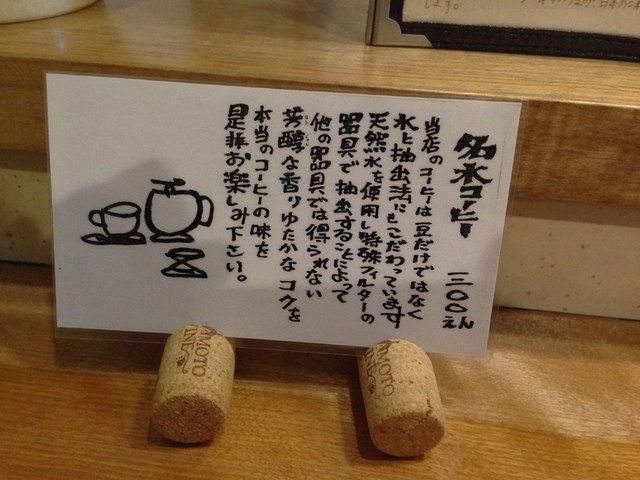 名水コーヒー 三〇〇えん
当店のコーヒーは豆だけではなく
水と抽出法にもこだわっています
天然水を使用し特殊フィルターの
器具で抽出することによって
他の器具では得られない
芳醇な香りゆたかなコクを
本当のコーヒーの味を
是非お楽しみ下さい。
AMOTO
INE
AMOTO